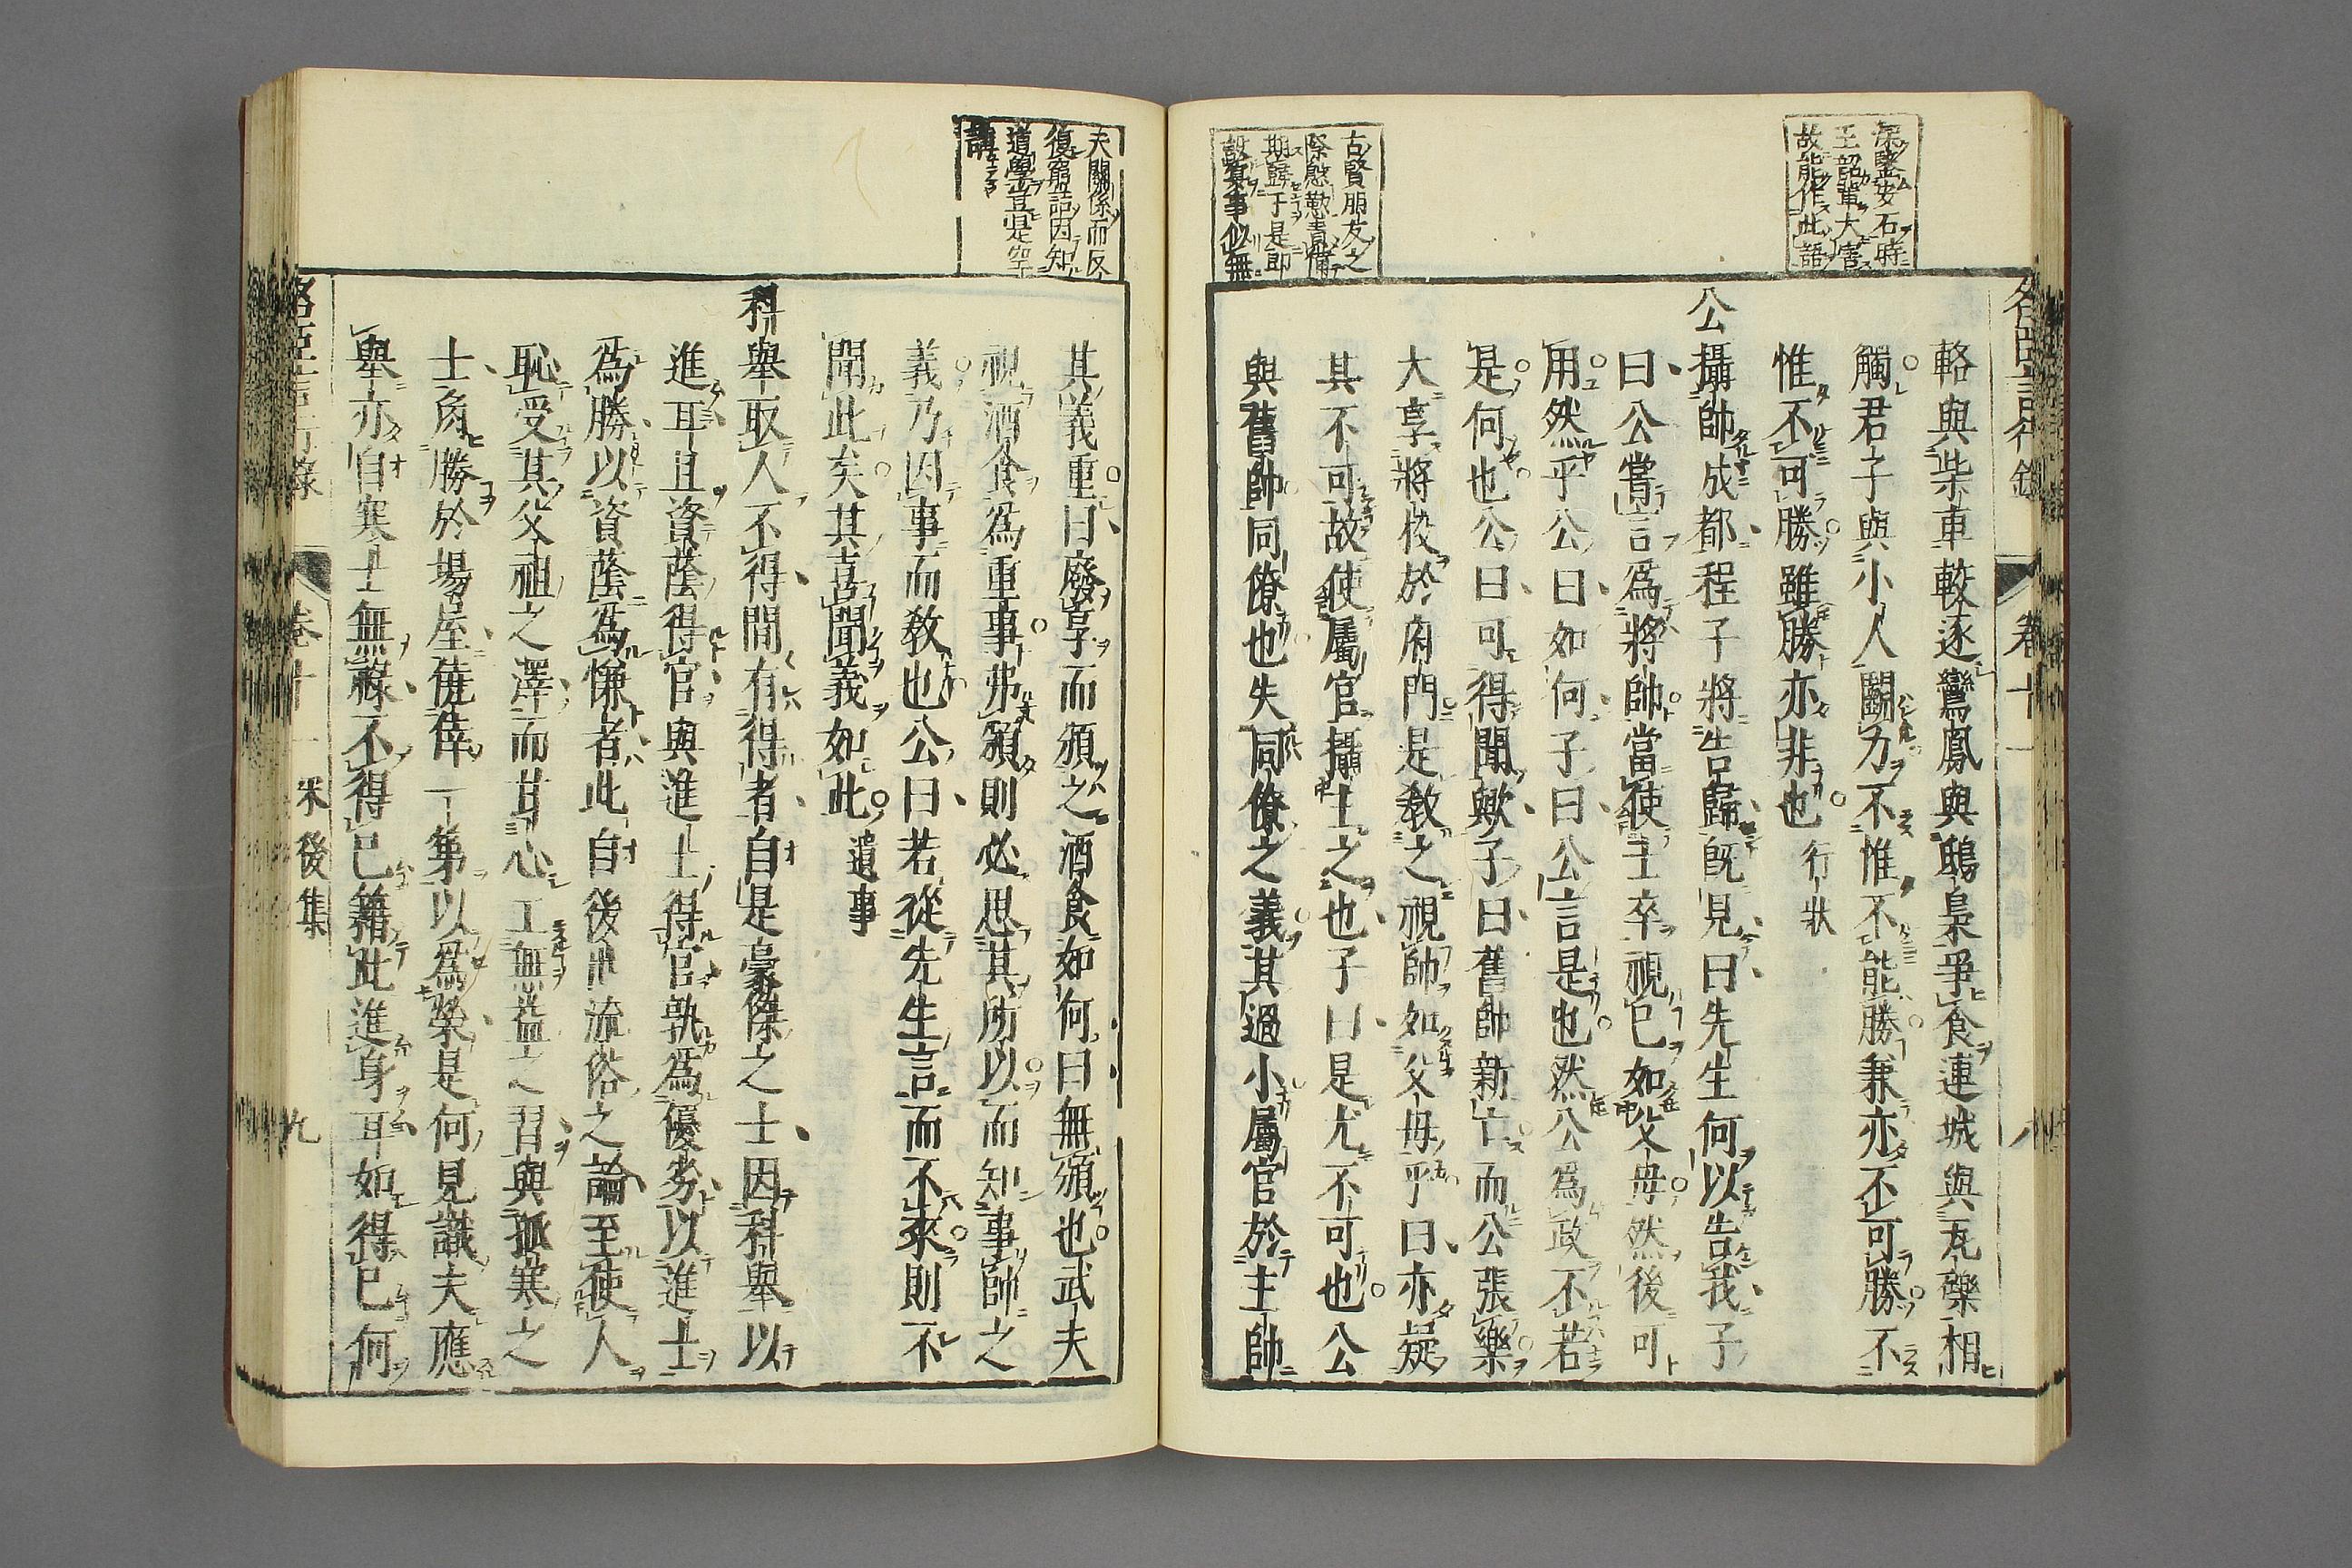 名臣言行錄
卷十一
八
深鑒安石時
王韶軰大害
故能作此語
古賢朋友之
際慇懃責備
期歸于是即
設實事似無
輅與柴車較逐鸞鳳與鴟梟爭食連城與瓦礫相
觸君子與小人鬬力不惟不能勝兼亦不可勝不
惟不可勝雖勝亦非也行狀
公攝帥成都程子將告歸旣見曰先生何以告我子
曰公嘗言爲將帥當使士卒視己如父母然後可
用然乎公曰如何子曰公言是也然公爲政不若
是何也公曰可得聞歟子曰舊帥新亡而公張樂
大享將校於府門是敎之視帥如父母乎曰亦疑
其不可故使屬官攝主之也子曰是尤不可也公
與舊帥同僚也失同僚之義其過小屬官於主帥
夫關係而反
復窮詰因知
道學豈是空
講
其義重曰廢享而頒之酒食如何曰無頒也武夫
視酒食爲重事弗頒則必思其所以而知事帥之
義乃因事而敎也公曰若從先生言而不來則不
聞此矣其喜聞義如此遺事
科舉取人不得間有得者自是豪傑之士因科舉以
進耳且資蔭得官與進士得官孰爲優劣以進士
爲勝以資蔭爲慊者此自後世流俗之論至使人
恥受其父祖之澤而甘心工無益之習與孤寒之
士角勝於場屋僥倖一第以爲榮是何見識夫應
舉亦自寒士無祿不得已籍此進身耳如得已何
名臣言行錄
卷十一
宋後集
九